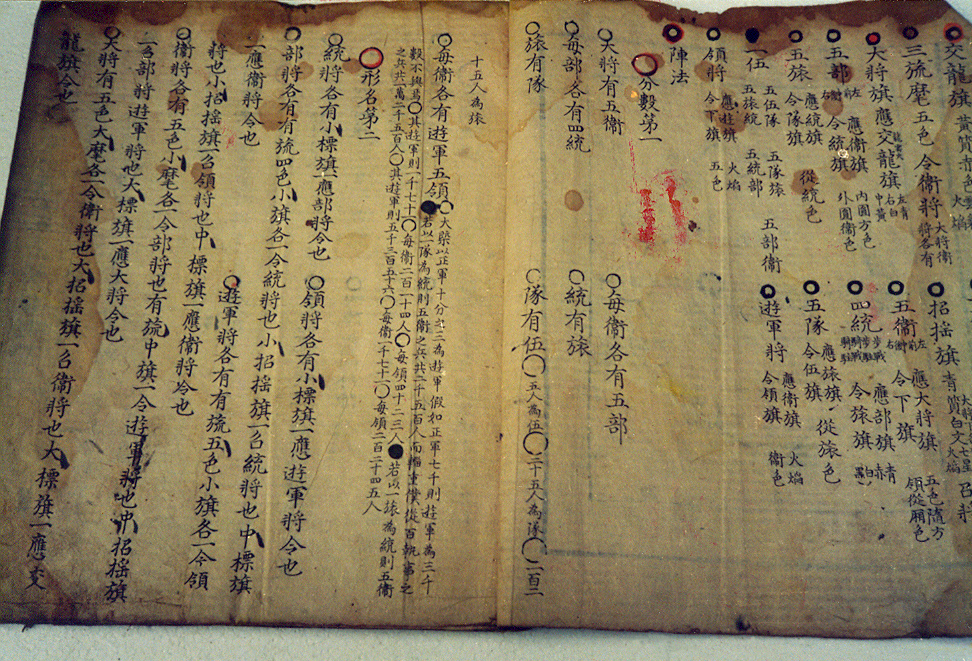 ○交龍旗 黃質青色 火焰
○三旒麾 五色 令衛將 大將衛將各有 ○招搖旗 青質白文 七星火焰
○大將旗 應交龍旗 左青右白中黃 ○五衛 令下旗 應大將旗 五色隨方 領從厢色
○五部 令統旗 應衛旗 內圓方色 外圓衛色 ○四統 令旅旗 應部旗
○五旅 令隊旗 應統旗 從統色 ○五隊 令伍旗 應旅旗 從旅色
○一伍 五伍隊 五隊旅 五旅統 五統部 五部衛 ○遊軍將 令領旗 應衛旗 火焰 衛色
○領將 令下旗 應柱旗 火焰 五色
○陣法
○分數第一
○大將有五衛 ○每衛各有五部
○每部各有四統 ○統有旅
○旅有隊 ○隊有伍○五人為伍○二十五人為隊○一百二
十五人為旅
○每衛各有遊軍五領○大槩以正軍十分之三為遊軍假如正軍七千則遊軍為三千
數不拘焉○若以一隊為統則五衛之兵共二千五百人而輜重僕從百執事之
○其遊軍則一千七十○每衛二百一十四人○每領四十二三人●若以一旅為統則五衛
之兵共一萬二千五百人○其遊軍則五千三百五十六○每衛一千七十一○每領二百一十四五人
○形名第二
○統將各有小標旗一應部將令也 ○領將各有小標旗一應遊軍將令也
○部將各有有旒四色小旗各一令統將也小招搖旗一召統將也中標旗
一應衛將令也 ○遊軍將各有有旒五色小旗各一令領
將也小招搖旗一召領將也中標旗一應衛將令也
○衛將各有五色小麾各一令部將也有旒中旗一令遊軍將也中招搖旗
一召部將遊軍將也大標旗一應大將令也
○大將有五色大麾各一令衛將也大招搖旗一召衛將也大標旗一應交
龍旗令也